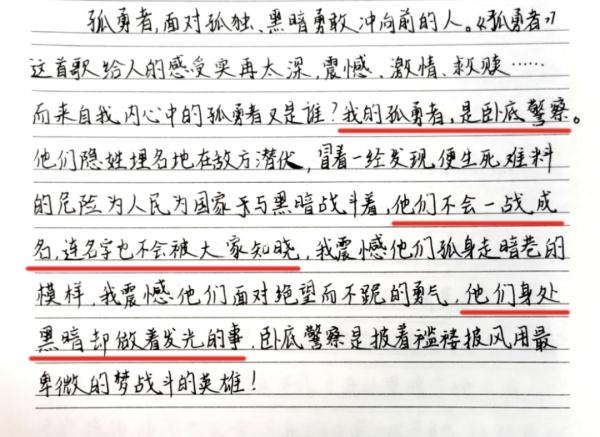 孤勇者,面对孤独、黑暗勇敢冲向前的人。《孤勇者》
这首歌给人的感受实再太深,震憾、激情、救赎……
而来自我内心中的孤勇者又是谁?我的孤勇者,是卧底警察。
他们隐姓埋名地在敌方潜伏,冒着一经发现,便生死难料
的危险为人民为国家于与黑暗战斗着,他们不会一战成
名,连名字也不会被大家知晓,我震憾他们孤身走暗巷的
模样,我震憾他们面对绝望而不跪的勇气,他们身处
黑暗却做着发光的事,卧底警察是披着褴褛披风用最
卑微的梦战斗的英雄!